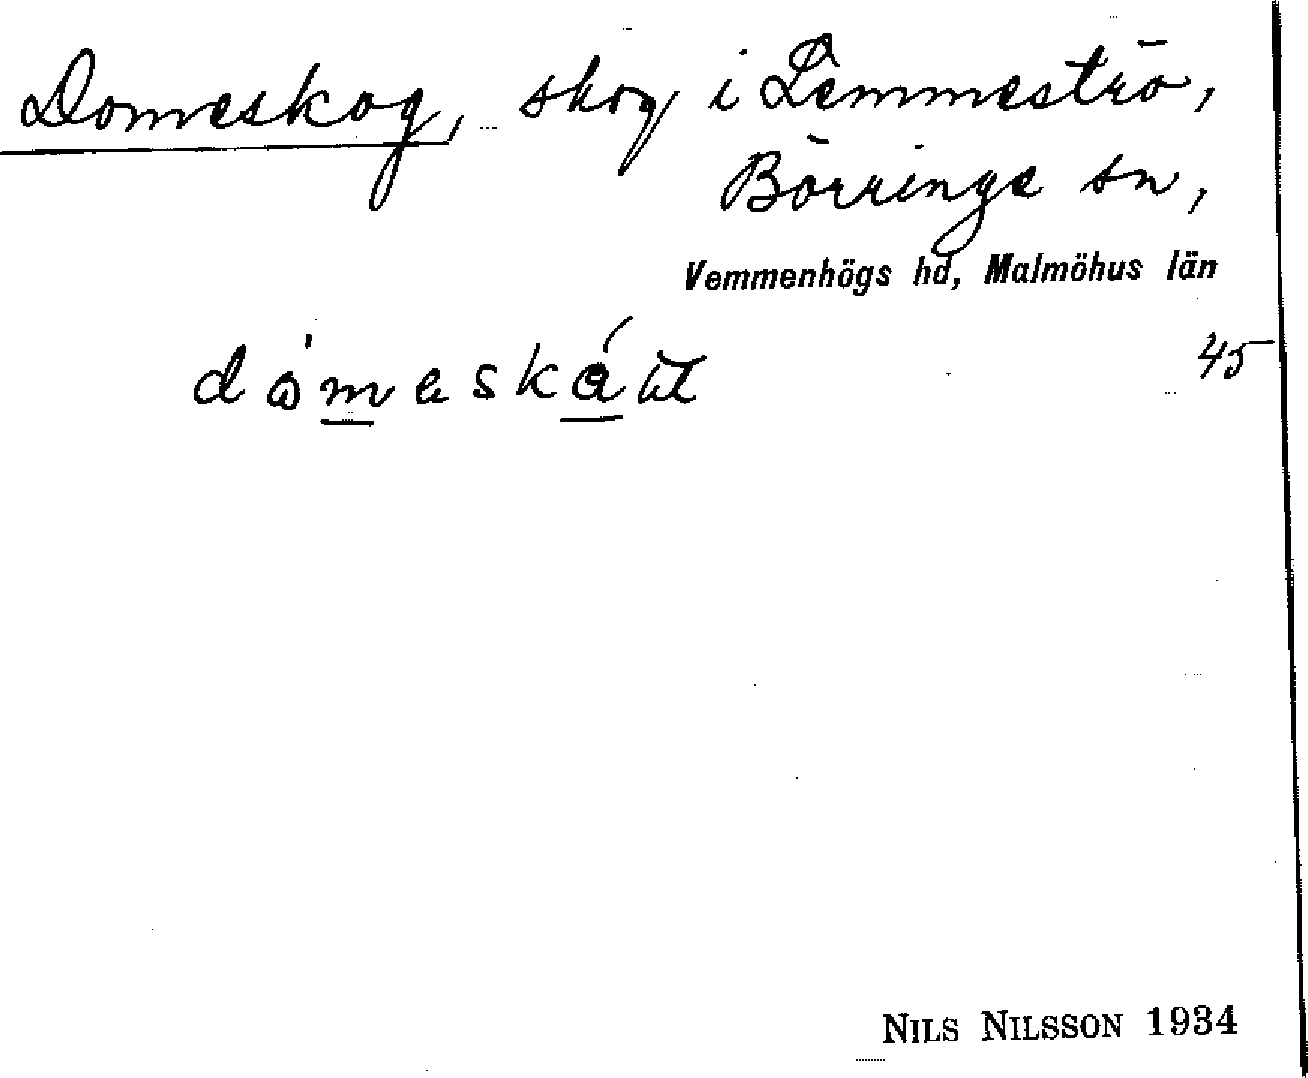 Domeskog, skog i Lemmeströ,
Börringe sn,
Vemmenhögs hd, Malmöhus län
45
NILS NILSSON 1934